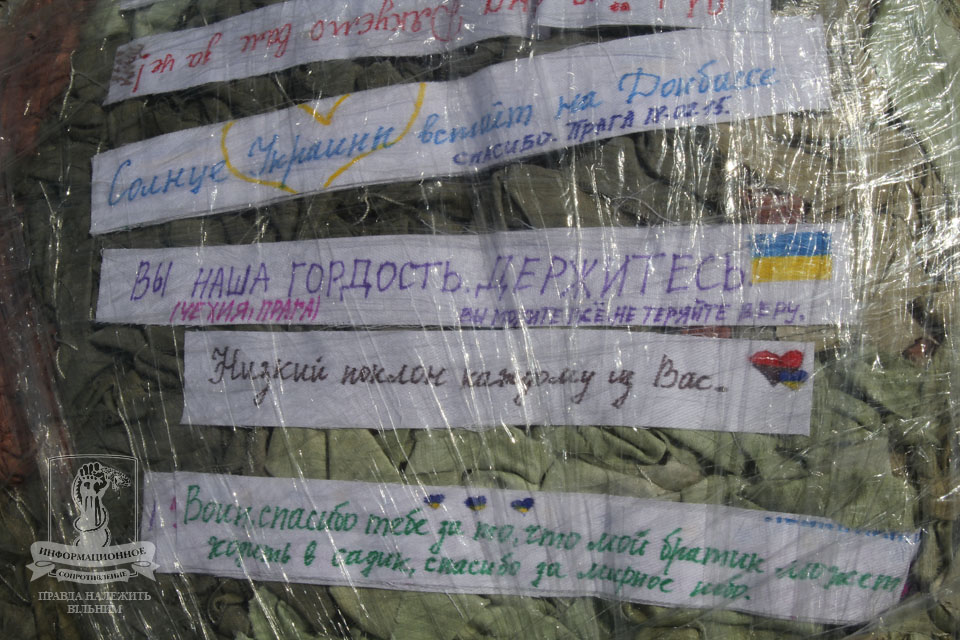 Дякуємо вам за це!
Солнце Украины встаёт на Донбассе
СПАСИБО. ПРАГА 18.02.15.
ВЫ НАША ГОРДОСТЬ. ДЕРЖИТЕСЬ.
(ЧЕХИЯ, ПРАГА) ВЫ МОЖИТЕ ВСЁ, НЕ ТЕРЯЙТЕ ВЕРУ.
Низкий поклон каждому из Вас.
Воин, спасибо тебе за то, что мой братик может
ходить в садик, спасибо за мирное небо.
ИНФОРМАЦИОННОЕ
СОПРОТИВЛЕНИЕ
ПРАВДА НАЛЕЖИТЬ
ВІЛЬНИМ